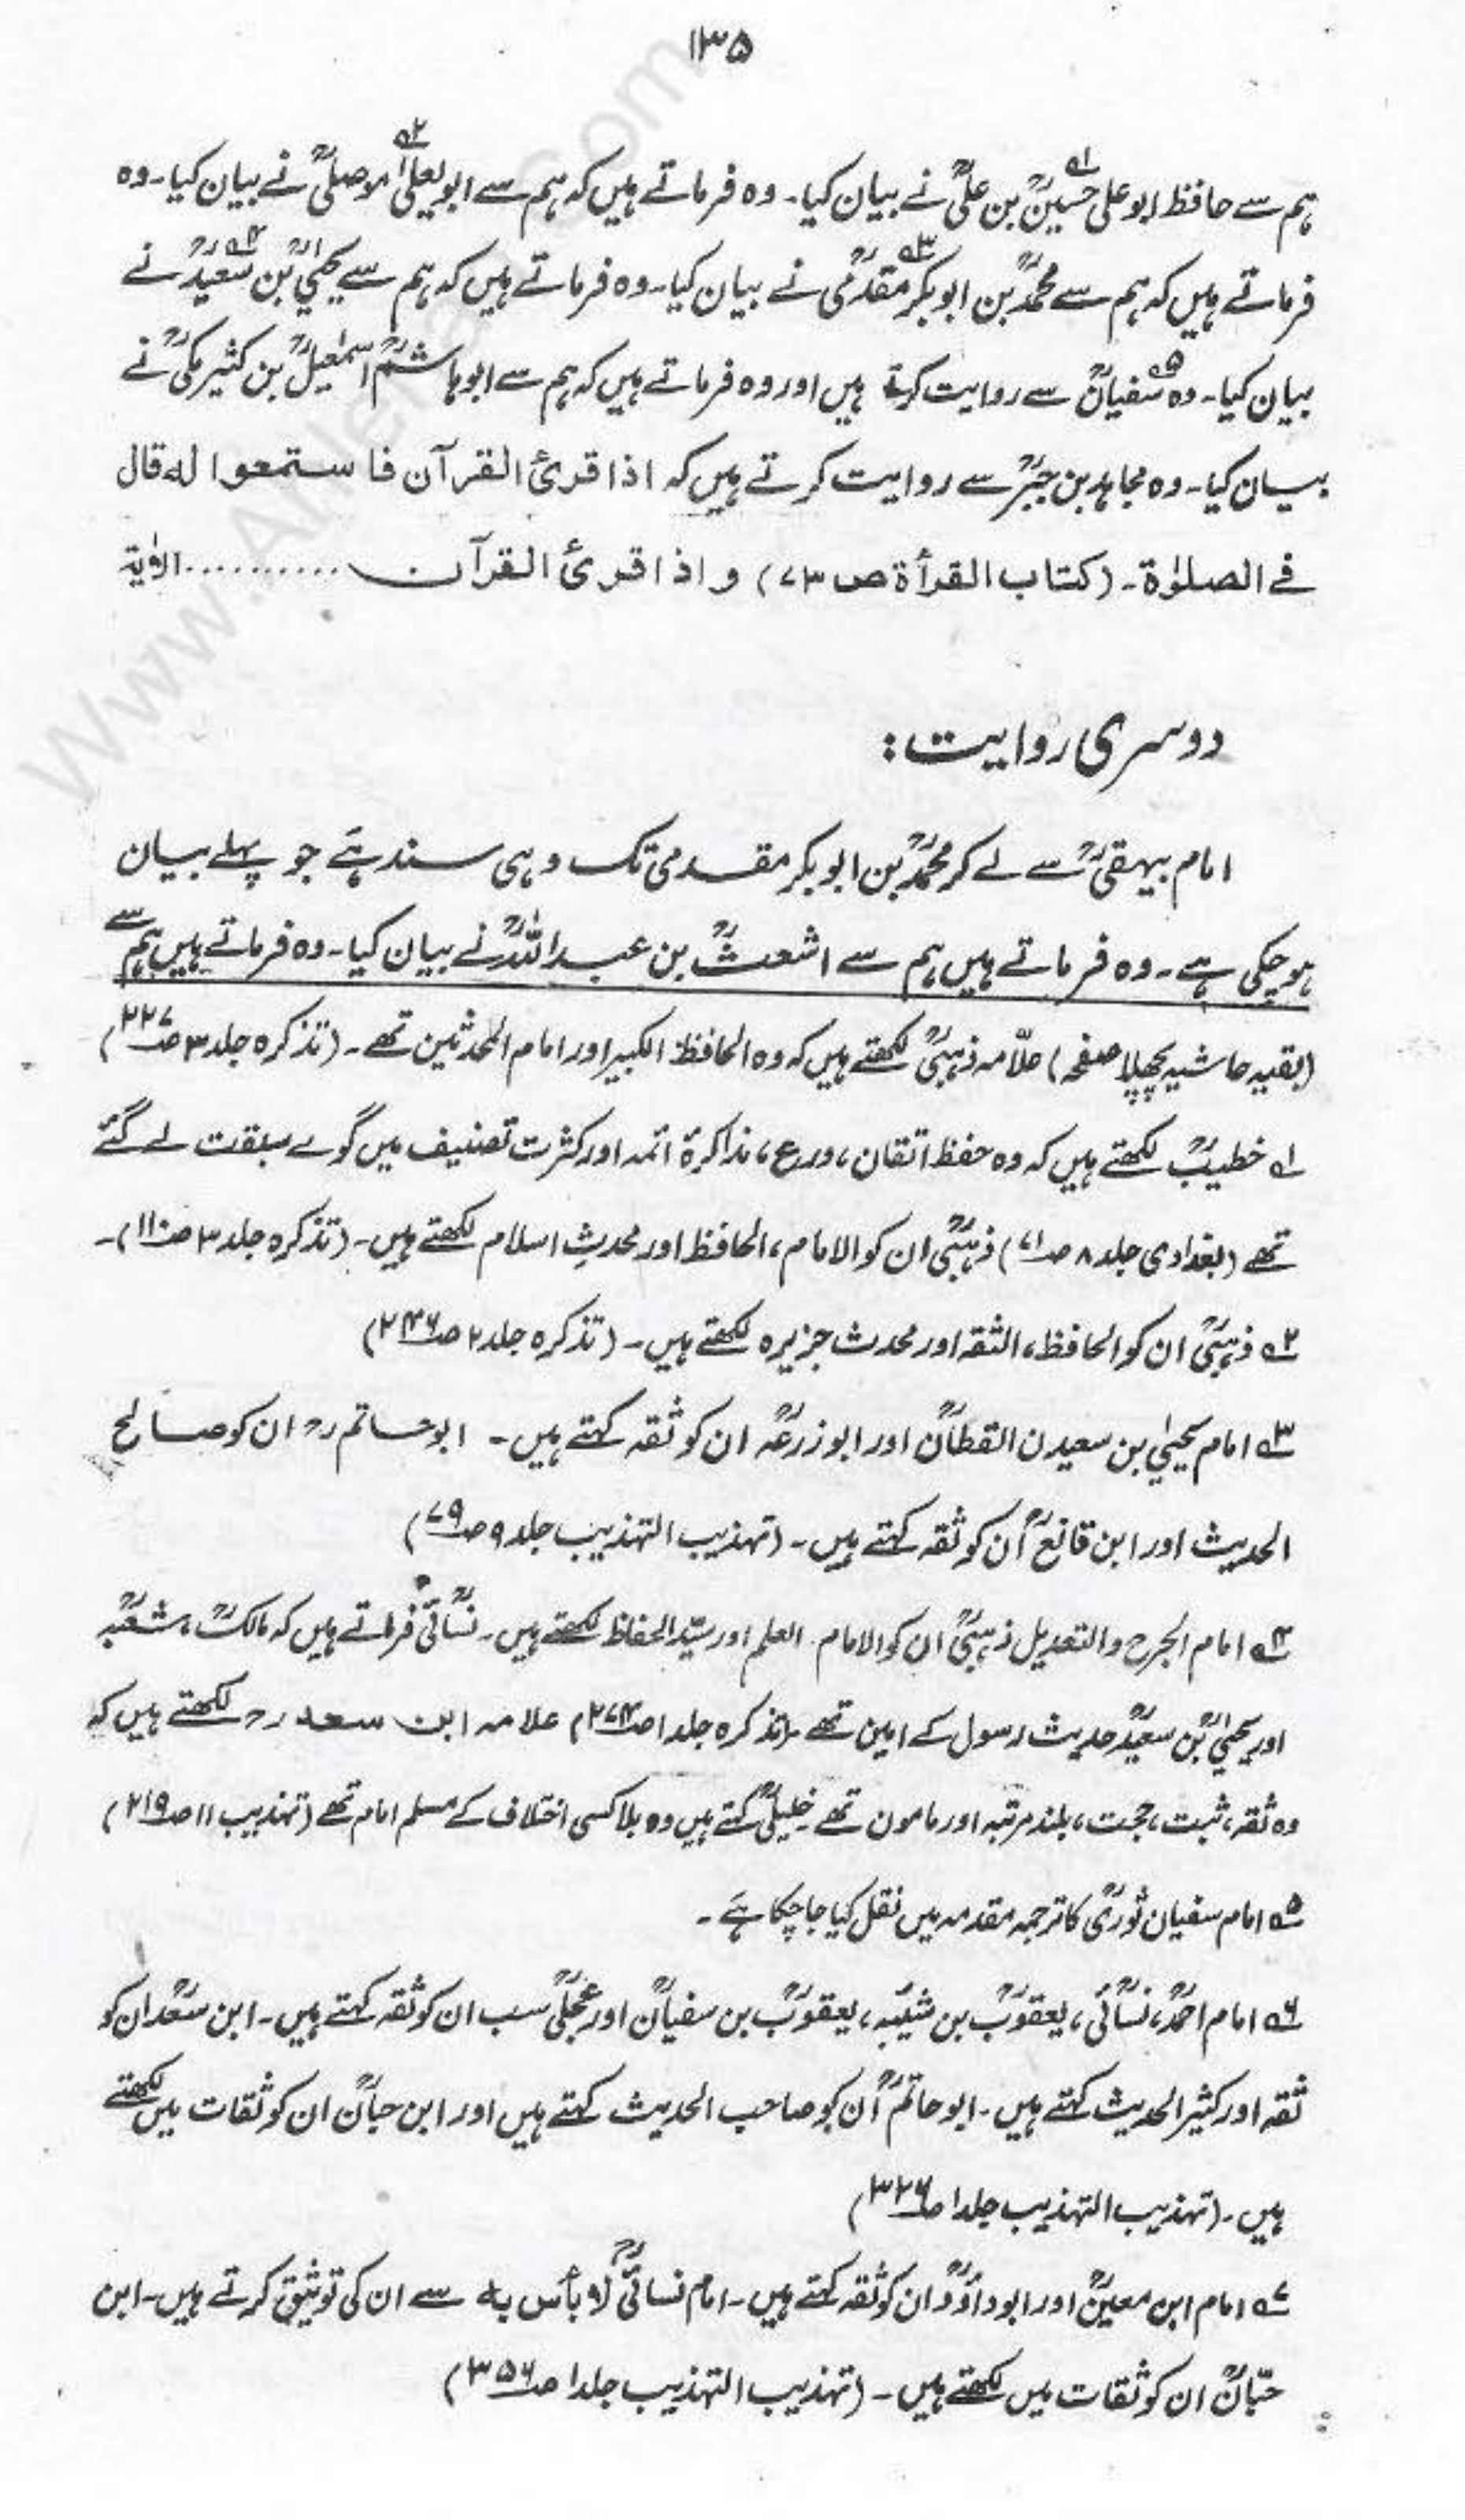 ۱۳۵
ہم سے حافظ ابو علی حسینؒ بن علیؒ نے بیان کیا۔ وہ فرماتے ہیں کہ ہم سے ابو یعلیٰ الموصلیؒ نے بیان کیا۔ وہ
فرماتے ہیں کہ ہم سے محمدؒ بن ابو بکر مقدمیؒ نے بیان کیا۔ وہ فرماتے ہیں کہ ہم سے یحییٰؒ بن سعیدؒ نے
بیان کیا۔ وہ سفیانؒ سے روایت کرتے ہیں اور وہ فرماتے ہیں کہ ہم سے ابو ہاشمؒ اسمٰعیلؒ بن کثیر مکیؒ نے
بیان کیا۔ وہ مجاہد بن جبرؒ سے روایت کرتے ہیں کہ اذا قرئ القرآن فاستمعوا لہ قال
فی الصلوٰۃ۔ (کتاب القرأۃ ص ۷۳) و اذا قرئ القرآن ..........الاٰیۃ
دوسری روایت:
امام بیہقیؒ سے لے کر محمدؒ بن ابو بکر مقدمی تک وہی سند ہے جو پہلے بیان
ہو چکی ہے۔ وہ فرماتے ہیں ہم سے اشعثؒ بن عبد اللہؒ نے بیان کیا۔ وہ فرماتے ہیں ہم سے
(بقیہ حاشیہ پچھلا صفحہ) علّامہ ذہبیؒ لکھتے ہیں کہ وہ الحافظ الکبیر اور امام المحدثین تھے۔ (تذکرہ جلد ۳ ص ۲۲۷)
۱؎ خطیبؒ لکھتے ہیں کہ وہ حفظ اتقان، ورع، مذاکرۂ ائمہ اور کثرت تصنیف میں گوئے سبقت لے گئے
تھے (بغدادی جلد ۸ ص ۷۱) ذہبیؒ ان کو الامام، الحافظ اور محدثِ اسلام لکھتے ہیں۔ (تذکرہ جلد ۳ ص ۱۱۰)۔
۲؎ ذہبیؒ ان کو الحافظ، الثقہ اور محدث جزیرہ لکھتے ہیں۔ (تذکرہ جلد ۲ ص ۲۴۶)
۳؎ امام یحییٰ بن سعیدن القطانؒ اور ابو زرعہؒ ان کو ثقہ کہتے ہیں۔ ابو حاتم رح ان کو صالح
الحدیث اور ابن قانعؒ اُن کو ثقہ کہتے ہیں۔ (تہذیب التہذیب جلد ۹ ص ۷۹)
۴؎ امام الجرح والتعدیل ذہبیؒ ان کو الامام۔ العلم اور سیّد الحفاظ لکھتے ہیں۔ نسائیؒ فرماتے ہیں کہ مالکؒ، شعبہؒ
اور یحییٰؒ بن سعیدؒ حدیث رسول کے امین تھے۔ (تذکرہ جلد ۱ ص ۲۷۴) علامہ ابن سعد رح لکھتے ہیں کہ
وہ ثقہ، ثبت، حجت، بلند مرتبہ اور مامون تھے۔ خلیلیؒ کہتے ہیں وہ بلا کسی اختلاف کے مسلم امام تھے (تہذیب ۱۱ ص ۲۱۹)
۵؎ امام سفیان ثوریؒ کا ترجمہ مقدمہ میں نقل کیا جا چکا ہے۔
۶؎ امام احمدؒ، نسائیؒ، یعقوبؒ بن شیبہؒ، یعقوبؒ بن سفیانؒ اور عجلیؒ سب ان کو ثقہ کہتے ہیں۔ ابن سعدؒ ان کو
ثقہ اور کثیر الحدیث کہتے ہیں۔ ابو حاتمؒ اُن کو صاحب الحدیث کہتے ہیں اور ابن حبانؒ ان کو ثقات میں لکھتے
ہیں۔ (تہذیب التہذیب جلد ۱ ص ۳۲۶)
۷؎ امام ابن معینؒ اور ابو داؤدؒ ان کو ثقہ کہتے ہیں۔ امام نسائیؒ لا بأس بہ سے ان کی توثیق کرتے ہیں۔ ابن
حبّانؒ ان کو ثقات میں لکھتے ہیں۔ (تہذیب التہذیب جلد ۱ ص ۳۵۶)